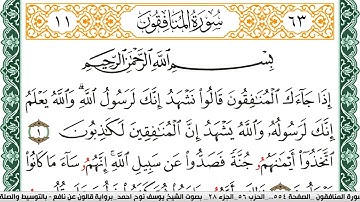 ١١ سُورَةُ الْمُنَافِقُونَ ٦٣
بِسْمِ اللَّهِ الرَّحْمَٰنِ الرَّحِيمِ
إِذَا جَآءَكَ ٱلْمُنَٰفِقُونَ قَالُوا۟ نَشْهَدُ إِنَّكَ لَرَسُولُ ٱللَّهِۗ وَٱللَّهُ يَعْلَمُ
إِنَّكَ لَرَسُولُهُۥ وَٱللَّهُ يَشْهَدُ إِنَّ ٱلْمُنَٰفِقِينَ لَكَٰذِبُونَ ١
ٱتَّخَذُوٓا۟ أَيْمَٰنَهُمْ جُنَّةً فَصَدُّوا۟ عَن سَبِيلِ ٱللَّهِۚ إِنَّهُمْ سَآءَ مَا كَانُوا۟
سورة المنافقون - الصفحة ٥٥٤ ... الحزب ٥٦ - الجزء ٢٨ - بصوت الشيخ يوسف نوح احمد - برواية قالون عن نافع - بالتوسيط والصلة